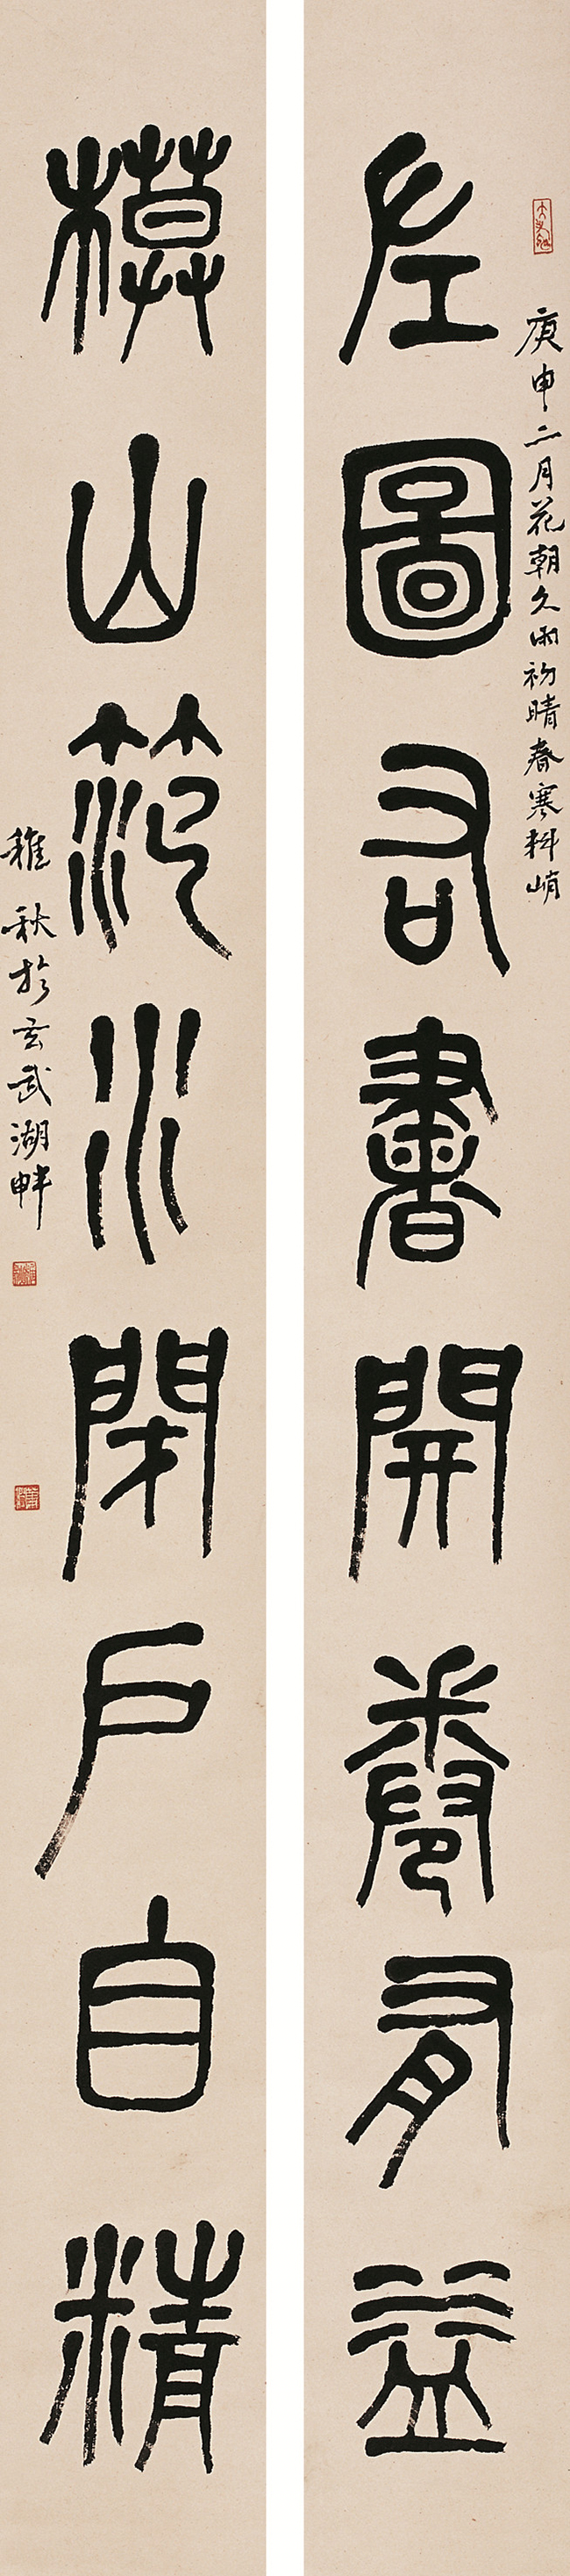 庚申二月花朝久雨初晴春寒料峭
左圖右書開卷有益
模山范水閉戶自精
稚秋於玄武湖畔